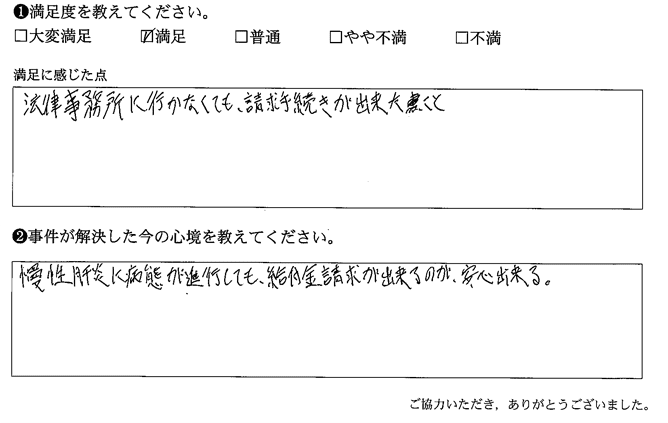 ❶満足度を教えてください。
□大変満足 ☑満足 □普通 □やや不満 □不満
満足に感じた点
法律事務所に行かなくても、請求手続きが出来た点
❷事件が解決した今の心境を教えてください。
慢性肝炎に病態が進行しても、給付金請求が出来るのが、安心出来る。
ご協力いただき，ありがとうございました。